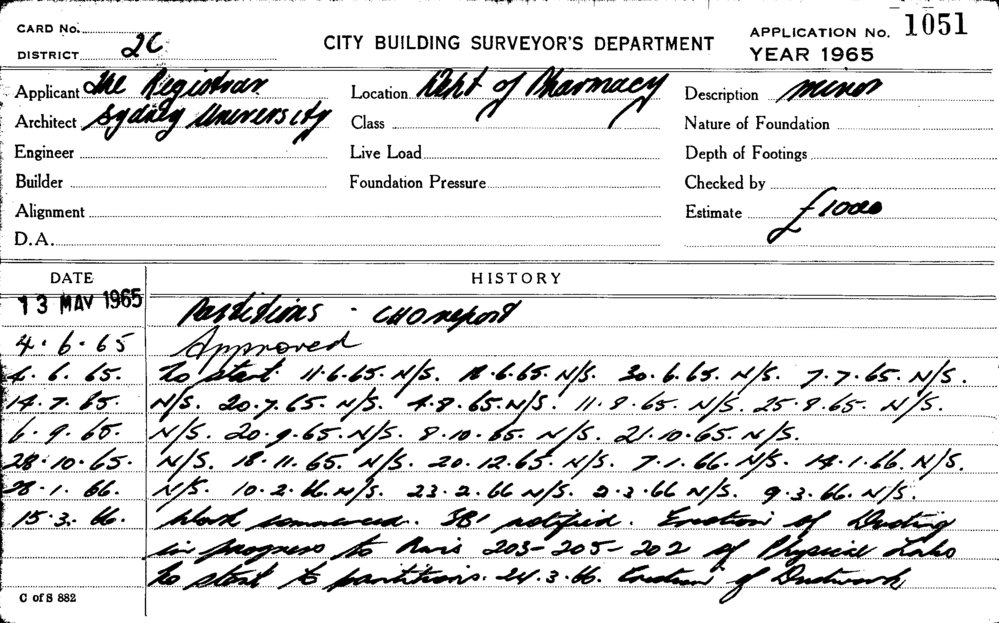 CARD No.
DISTRICT 2C
CITY BUILDING SURVEYOR'S DEPARTMENT
APPLICATION No. 1051
YEAR 1965
Applicant The Registrar
Architect Sydney University
Engineer
Builder
Alignment
D.A.
Location Dept of Pharmacy
Class
Live Load
Foundation Pressure
Description minor
Nature of Foundation
Depth of Footings
Checked by
Estimate £1000
DATE HISTORY
13 MAY 1965 Partitions - CHO report
4.6.65 Approved
4.6.65. To start 11.6.65. N/S. 18.6.65. N/S. 30.6.65. N/S. 7.7.65. N/S.
14.7.65. N/S. 20.7.65. N/S. 4.8.65. N/S. 11.8.65. N/S. 25.8.65. N/S.
6.9.65. N/S. 20.9.65. N/S. 8.10.65. N/S. 21.10.65. N/S.
28.10.65. N/S. 18.11.65. N/S. 20.12.65. N/S. 7.1.66. N/S. 14.1.66. N/S.
28.1.66. N/S. 10.2.66. N/S. 23.2.66 N/S. 2.3.66 N/S. 9.3.66. N/S.
15.3.66. Work commenced. notified. Erection of Ducting
in progress to Rms 203-205-202 of Physical Labs
To start to partitions. 24.3.66. Erection of Ductwork
C of S 882